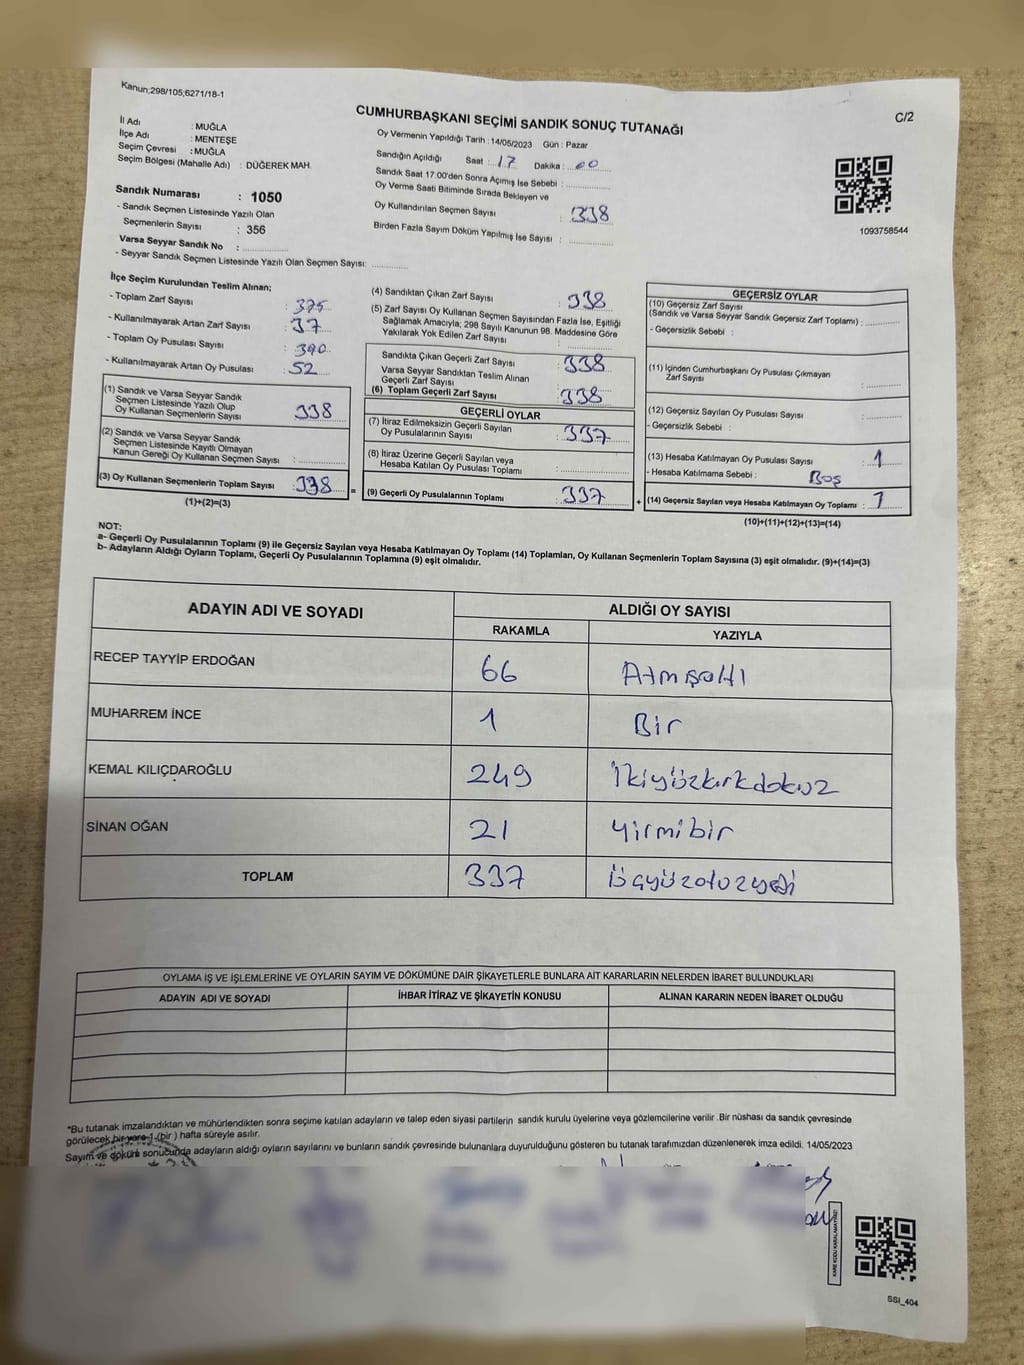 Kanun;298/105;6271/18-1
CUMHURBAŞKANI SEÇİMİ SANDIK SONUÇ TUTANAĞI
C/2
İl Adı : MUĞLA
İlçe Adı : MENTEŞE
Seçim Çevresi : MUĞLA
Seçim Bölgesi (Mahalle Adı) : DÜĞEREK MAH.
Sandık Numarası : 1050
- Sandık Seçmen Listesinde Yazılı Olan
Seçmenlerin Sayısı : 356
Varsa Seyyar Sandık No :
- Seyyar Sandık Seçmen Listesinde Yazılı Olan Seçmen Sayısı:
Oy Vermenin Yapıldığı Tarih : 14/05/2023 Gün : Pazar
Sandığın Açıldığı Saat : 17 Dakika : 00
Sandık Saat 17:00'den Sonra Açımış İse Sebebi :
Oy Verme Saati Bitiminde Sırada Bekleyen ve
Oy Kullandırılan Seçmen Sayısı : 338
Birden Fazla Sayım Döküm Yapılmış İse Sayısı :
1093758544
İlçe Seçim Kurulundan Teslim Alınan;
- Toplam Zarf Sayısı : 375
- Kullanılmayarak Artan Zarf Sayısı : 37
- Toplam Oy Pusulası Sayısı : 390
- Kullanılmayarak Artan Oy Pusulası : 52
(1) Sandık ve Varsa Seyyar Sandık
Seçmen Listesinde Yazılı Olup
Oy Kullanan Seçmenlerin Sayısı : 338
(2) Sandık ve Varsa Seyyar Sandık
Seçmen Listesinde Kayıtlı Olmayan
Kanun Gereği Oy Kullanan Seçmen Sayısı :
(3) Oy Kullanan Seçmenlerin Toplam Sayısı : 338
(1)+(2)=(3)
(4) Sandıktan Çıkan Zarf Sayısı : 338
(5) Zarf Sayısı Oy Kullanan Seçmen Sayısından Fazla İse, Eşitliği
Sağlamak Amacıyla; 298 Sayılı Kanunun 98. Maddesine Göre
Yakılarak Yok Edilen Zarf Sayısı :
Sandıkta Çıkan Geçerli Zarf Sayısı : 338
Varsa Seyyar Sandıktan Teslim Alınan
Geçerli Zarf Sayısı :
(6) Toplam Geçerli Zarf Sayısı : 338
GEÇERLİ OYLAR
(7) İtiraz Edilmeksizin Geçerli Sayılan
Oy Pusulalarının Sayısı : 337
(8) İtiraz Üzerine Geçerli Sayılan veya
Hesaba Katılan Oy Pusulası Toplamı :
= (9) Geçerli Oy Pusulalarının Toplamı : 337
GEÇERSİZ OYLAR
(10) Geçersiz Zarf Sayısı
(Sandık ve Varsa Seyyar Sandık Geçersiz Zarf Toplamı) :
- Geçersizlik Sebebi :
(11) İçinden Cumhurbaşkanı Oy Pusulası Çıkmayan
Zarf Sayısı :
(12) Geçersiz Sayılan Oy Pusulası Sayısı :
- Geçersizlik Sebebi :
(13) Hesaba Katılmayan Oy Pusulası Sayısı : 1
- Hesaba Katılmama Sebebi : Boş
+ (14) Geçersiz Sayılan veya Hesaba Katılmayan Oy Toplamı : 1
(10)+(11)+(12)+(13)=(14)
NOT:
a- Geçerli Oy Pusulalarının Toplamı (9) ile Geçersiz Sayılan veya Hesaba Katılmayan Oy Toplamı (14) Toplamları, Oy Kullanan Seçmenlerin Toplam Sayısına (3) eşit olmalıdır. (9)+(14)=(3)
b- Adayların Aldığı Oyların Toplamı, Geçerli Oy Pusulalarının Toplamına (9) eşit olmalıdır.
ADAYIN ADI VE SOYADI ALDIĞI OY SAYISI
RAKAMLA YAZIYLA
RECEP TAYYİP ERDOĞAN 66 Atmışaltı
MUHARREM İNCE 1 Bir
KEMAL KILIÇDAROĞLU 249 İkiyüzkırkdokuz
SİNAN OĞAN 21 Yirmibir
TOPLAM 337 üçyüzotuzyedi
OYLAMA İŞ VE İŞLEMLERİNE VE OYLARIN SAYIM VE DÖKÜMÜNE DAİR ŞİKAYETLERLE BUNLARA AİT KARARLARIN NELERDEN İBARET BULUNDUKLARI
ADAYIN ADI VE SOYADI İHBAR İTİRAZ VE ŞİKAYETİN KONUSU ALINAN KARARIN NEDEN İBARET OLDUĞU
*Bu tutanak imzalandıktan ve mühürlendikten sonra seçime katılan adayların ve talep eden siyasi partilerin sandık kurulu üyelerine veya gözlemcilerine verilir .Bir nüshası da sandık çevresinde
görülecek bir yere 1 (bir ) hafta süreyle asılır.
Sayım ve döküm sonucunda adayların aldığı oyların sayılarını ve bunların sandık çevresinde bulunanlara duyurulduğunu gösteren bu tutanak tarafımızdan düzenlenerek imza edildi. 14/05/2023
KARE KODU KARALAMAYINIZ!
SSI_404